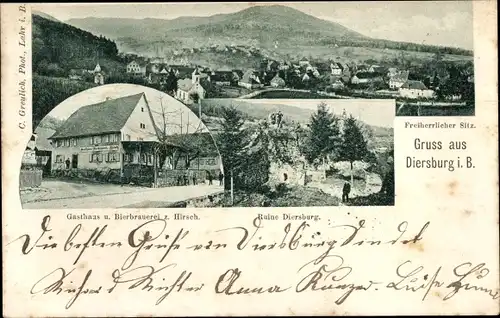 C. Greulich, Phot., Lahr i. B.
Freiherrlicher Sitz.
Gruss aus
Diersburg i. B.
Gasthaus u. Bierbrauerei z. Hirsch.
Ruine Diersburg.
Die besten Grüße von Diersburg senden
Anna Luise